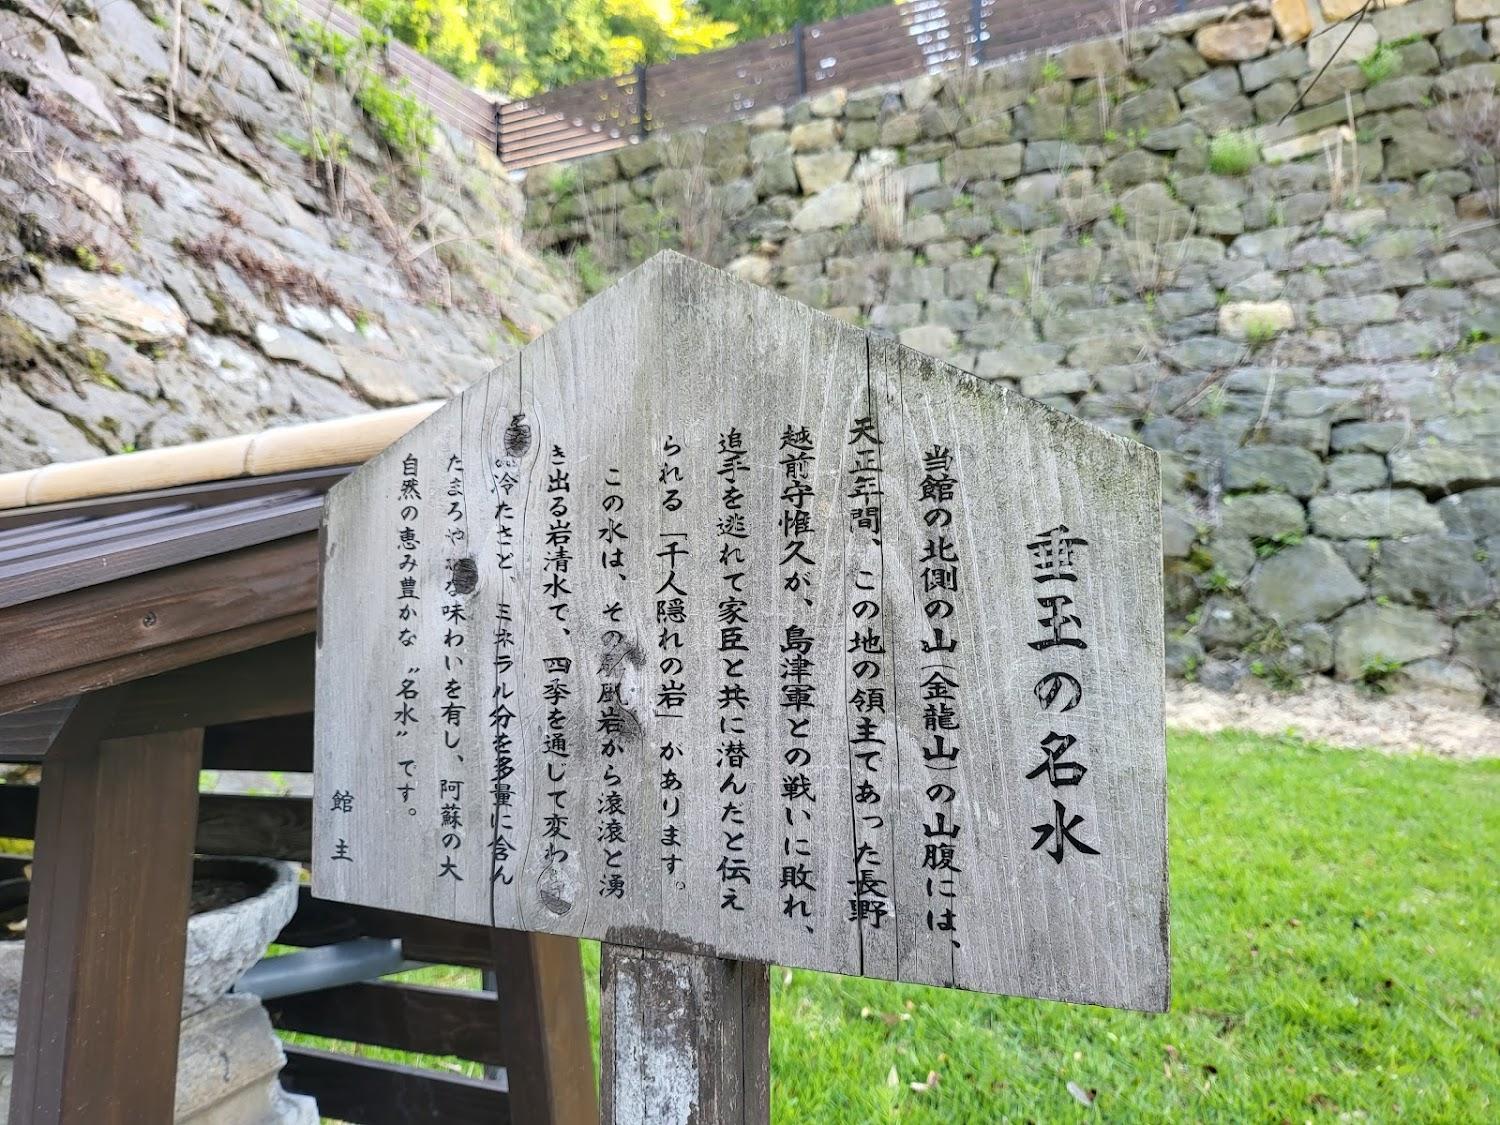 垂玉の名水
当館の北側の山(金龍山)の山腹には、
天正年間、この地の領主てあった長野
越前守惟久が、島津軍との戦いに敗れ、
追手を逃れて家臣と共に潜んたと伝え
られる「千人隠れの岩」があります。
この水は、その屏風岩から滾滾と湧
き出る岩清水て、四季を通じて変わ
冷たさと、ミネラル分を多量に含ん
たまろやかな味わいを有し、阿蘇の大
自然の恵み豊かな〝名水〟です。
館主